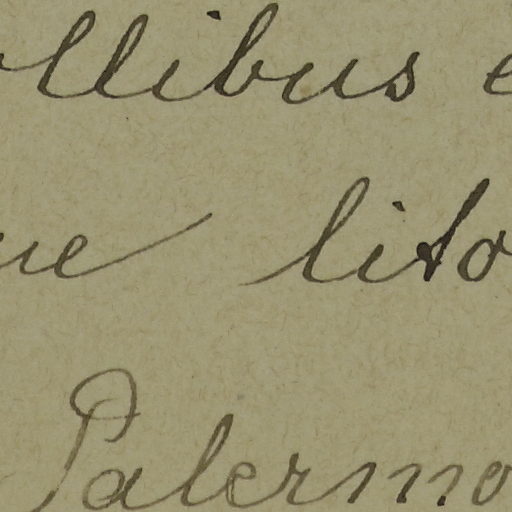 ollibus e
ue lito
Palermo